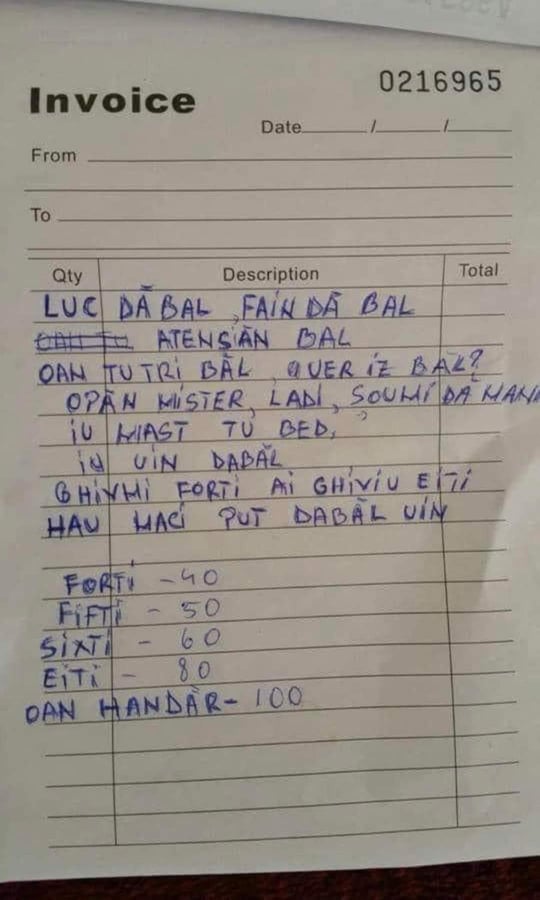 0216965
Invoice
Date / /
From
To
Qty Description Total
LUC DĂ BAL, FAIN DĂ BAL
ATENȘĂN BAL
OAN TU TRI BĂL, QUER IZ BĂL?
OPĂN MISTER, LADI, SOUMI DA MANI
IU MAST TU BED,
IU UIN DABĂL
GHIVMI FORTI AI GHIVIU EITI
HAU MACI PUT DABĂL UIN
FORTI - 40
FIFTI - 50
SIXTI - 60
EITI - 80
OAN HANDĂR - 100